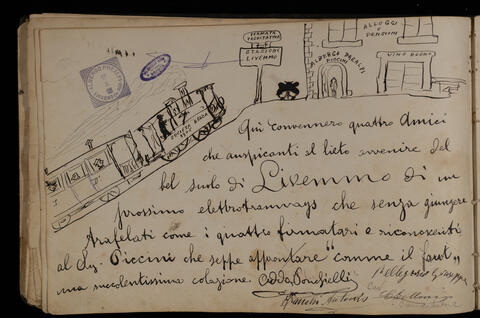 FERMATA
FACOLTATIVA
STAZIONE
LIVEMMO
ALLOGGI
E
PENSIONI
ALBERGO
PICCINI
VINO BUONO
Qui convennero quattro Amici
che auspicanti il lieto avvenire del
bel suolo di Livemmo di un
prossimo elettrotramways che senza giungere
trafelati come i quattro firmatari e riconoscenti
al Sig. Piccini che seppe appontare "comme il faut"
una succolentissima colazione. Oddo Ponchielli
Pellegrino Giuseppe
Antonio